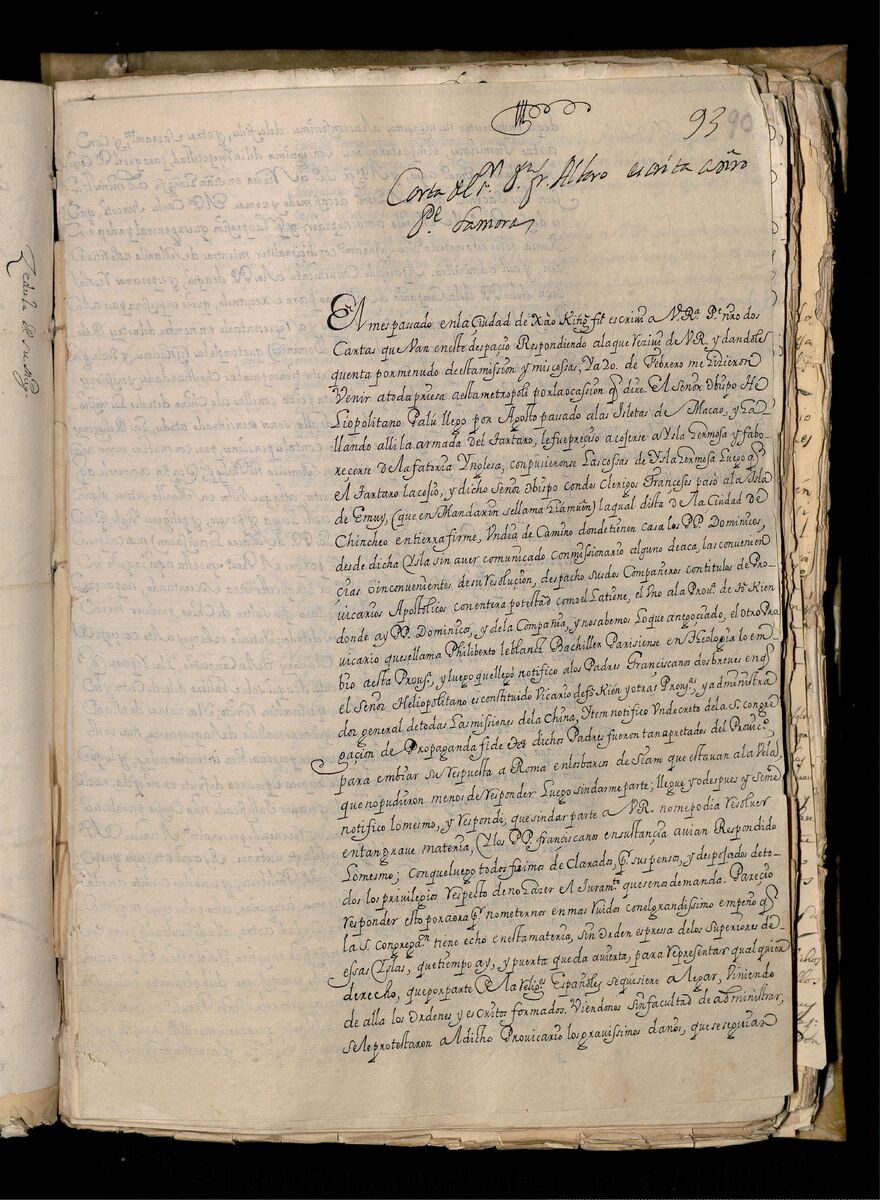 93 90
Carta del P. fr. Alvaro escrita a nro
Pe. Zamora
Cedula de su Mag.
El mes passado enla Ciudad de Xao King fu escrivi a V.Ra. Pe. nro dos
Cartas que Van eneste despacio Respondiendo alaque Recivi de V.R. y dandoles
quenta por menudo de esta mission, y mis cossas, Ya 20. de Febrero me hizieron
Venir atoda priessa aesta metropoli por la ocassion q̃ dire. El Señor Obispo He
liopolitano Palú llego por Agosto passado alas Isletas de Macao, y ha-
llando alli la armada del Tartaro, le fue preciso acojerse a Ysla Hermosa y fabo-
recerse dela fatoria Ynglesa, compusieronse Las cossas de Ysla Hermosa luego q̃
el Tartaro la cojio, y dicho Señor Obispo con dos Clerigos Franceses passo ala Isla
de Emuy, (que en Mandarin se llama Hiamuên) la qual dista de la Ciudad de
Chincheo en tierra firme, Vn dia de Camino donde tienen casa los PP. Dominicos,
desde dicha Ysla sin aver comunicado con missionario alguno de aca, las convenien
cias o inconvenientes de su resolucion, despacho sus dos Compañeros con titulos de Pro-
vicarios Apostolicos con entera potestad como el Latiene, el Vno ala Prova. de fo Kien
donde ay PP. Dominicos, y dela Compañia, y no sabemos Lo que a negociado, el otro Pro
vicario que se llama Philiberto leblanc Bachiller Parisiense en Theologia lo em-
bio aesta Prova. y luego que llego notifico alos Padres Franciscanos dos breves en q̃
el Señor Heliopolitano es constituido Vicario de fo Kien y otras Provas. y administra
dor general de todas Las missiones dela China, Item notifico Vn decreto dela S. congre
gacion de Propaganda fide dichos Padres fueron tan apretados del Provico.
para embiar su respuesta a Roma en los barcos de Siam que estavan ala Vela
que no pudieron menos de responder Luego sin darme parte; llegue yo despues y se me
notifico lo mesmo, y respondi, que sin dar parte a V.R. no me podia resolver
en tan grave materia, Y los PP. franciscanos en sustancia avian Respondido
Lo mesmo; con que luego todos fuimos declarados, pr. suspensos, y despojados de to-
dos los privilegios respecto de no hazer el Juramto. que se nos demanda. Parecio
responder esto por aora pr. no meternos en mas ruidos con el grandissimo empeño q̃
la S. Congregan. tiene echo en esta materia, sin orden espresa delos superiores de
essas Yslas, que tiempo ay, y puerta queda avierta, para representar qualquier
derecho, que por parte de las religes. Españoles se quisiere alegar, Viniendo
de alla los Ordenes y escritos formados. Viendonos sin facultad de administrar,
se le protestaron al dicho Provicario los gravissimos daños, que se seguirian